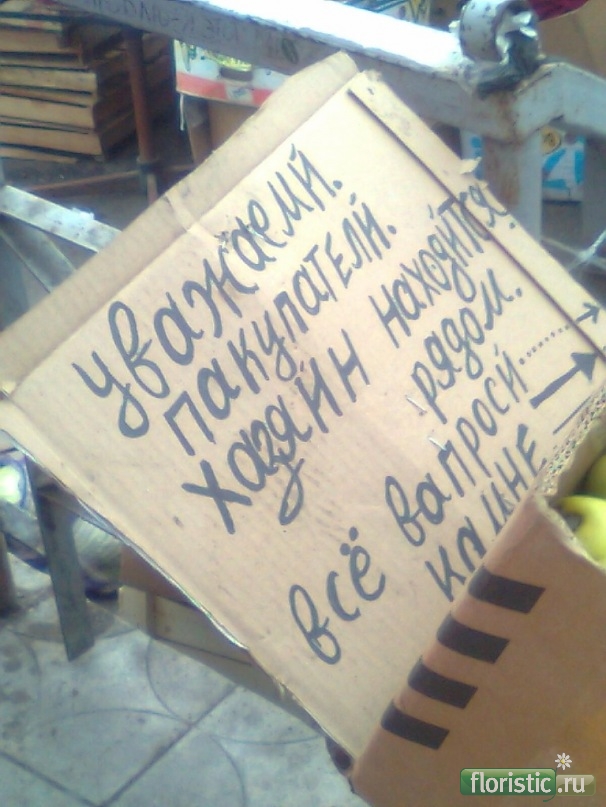 уважаемй.
пакупатели.
хазяин находйтся
рядом.
всё вапросй
ка мне
floristic.ru